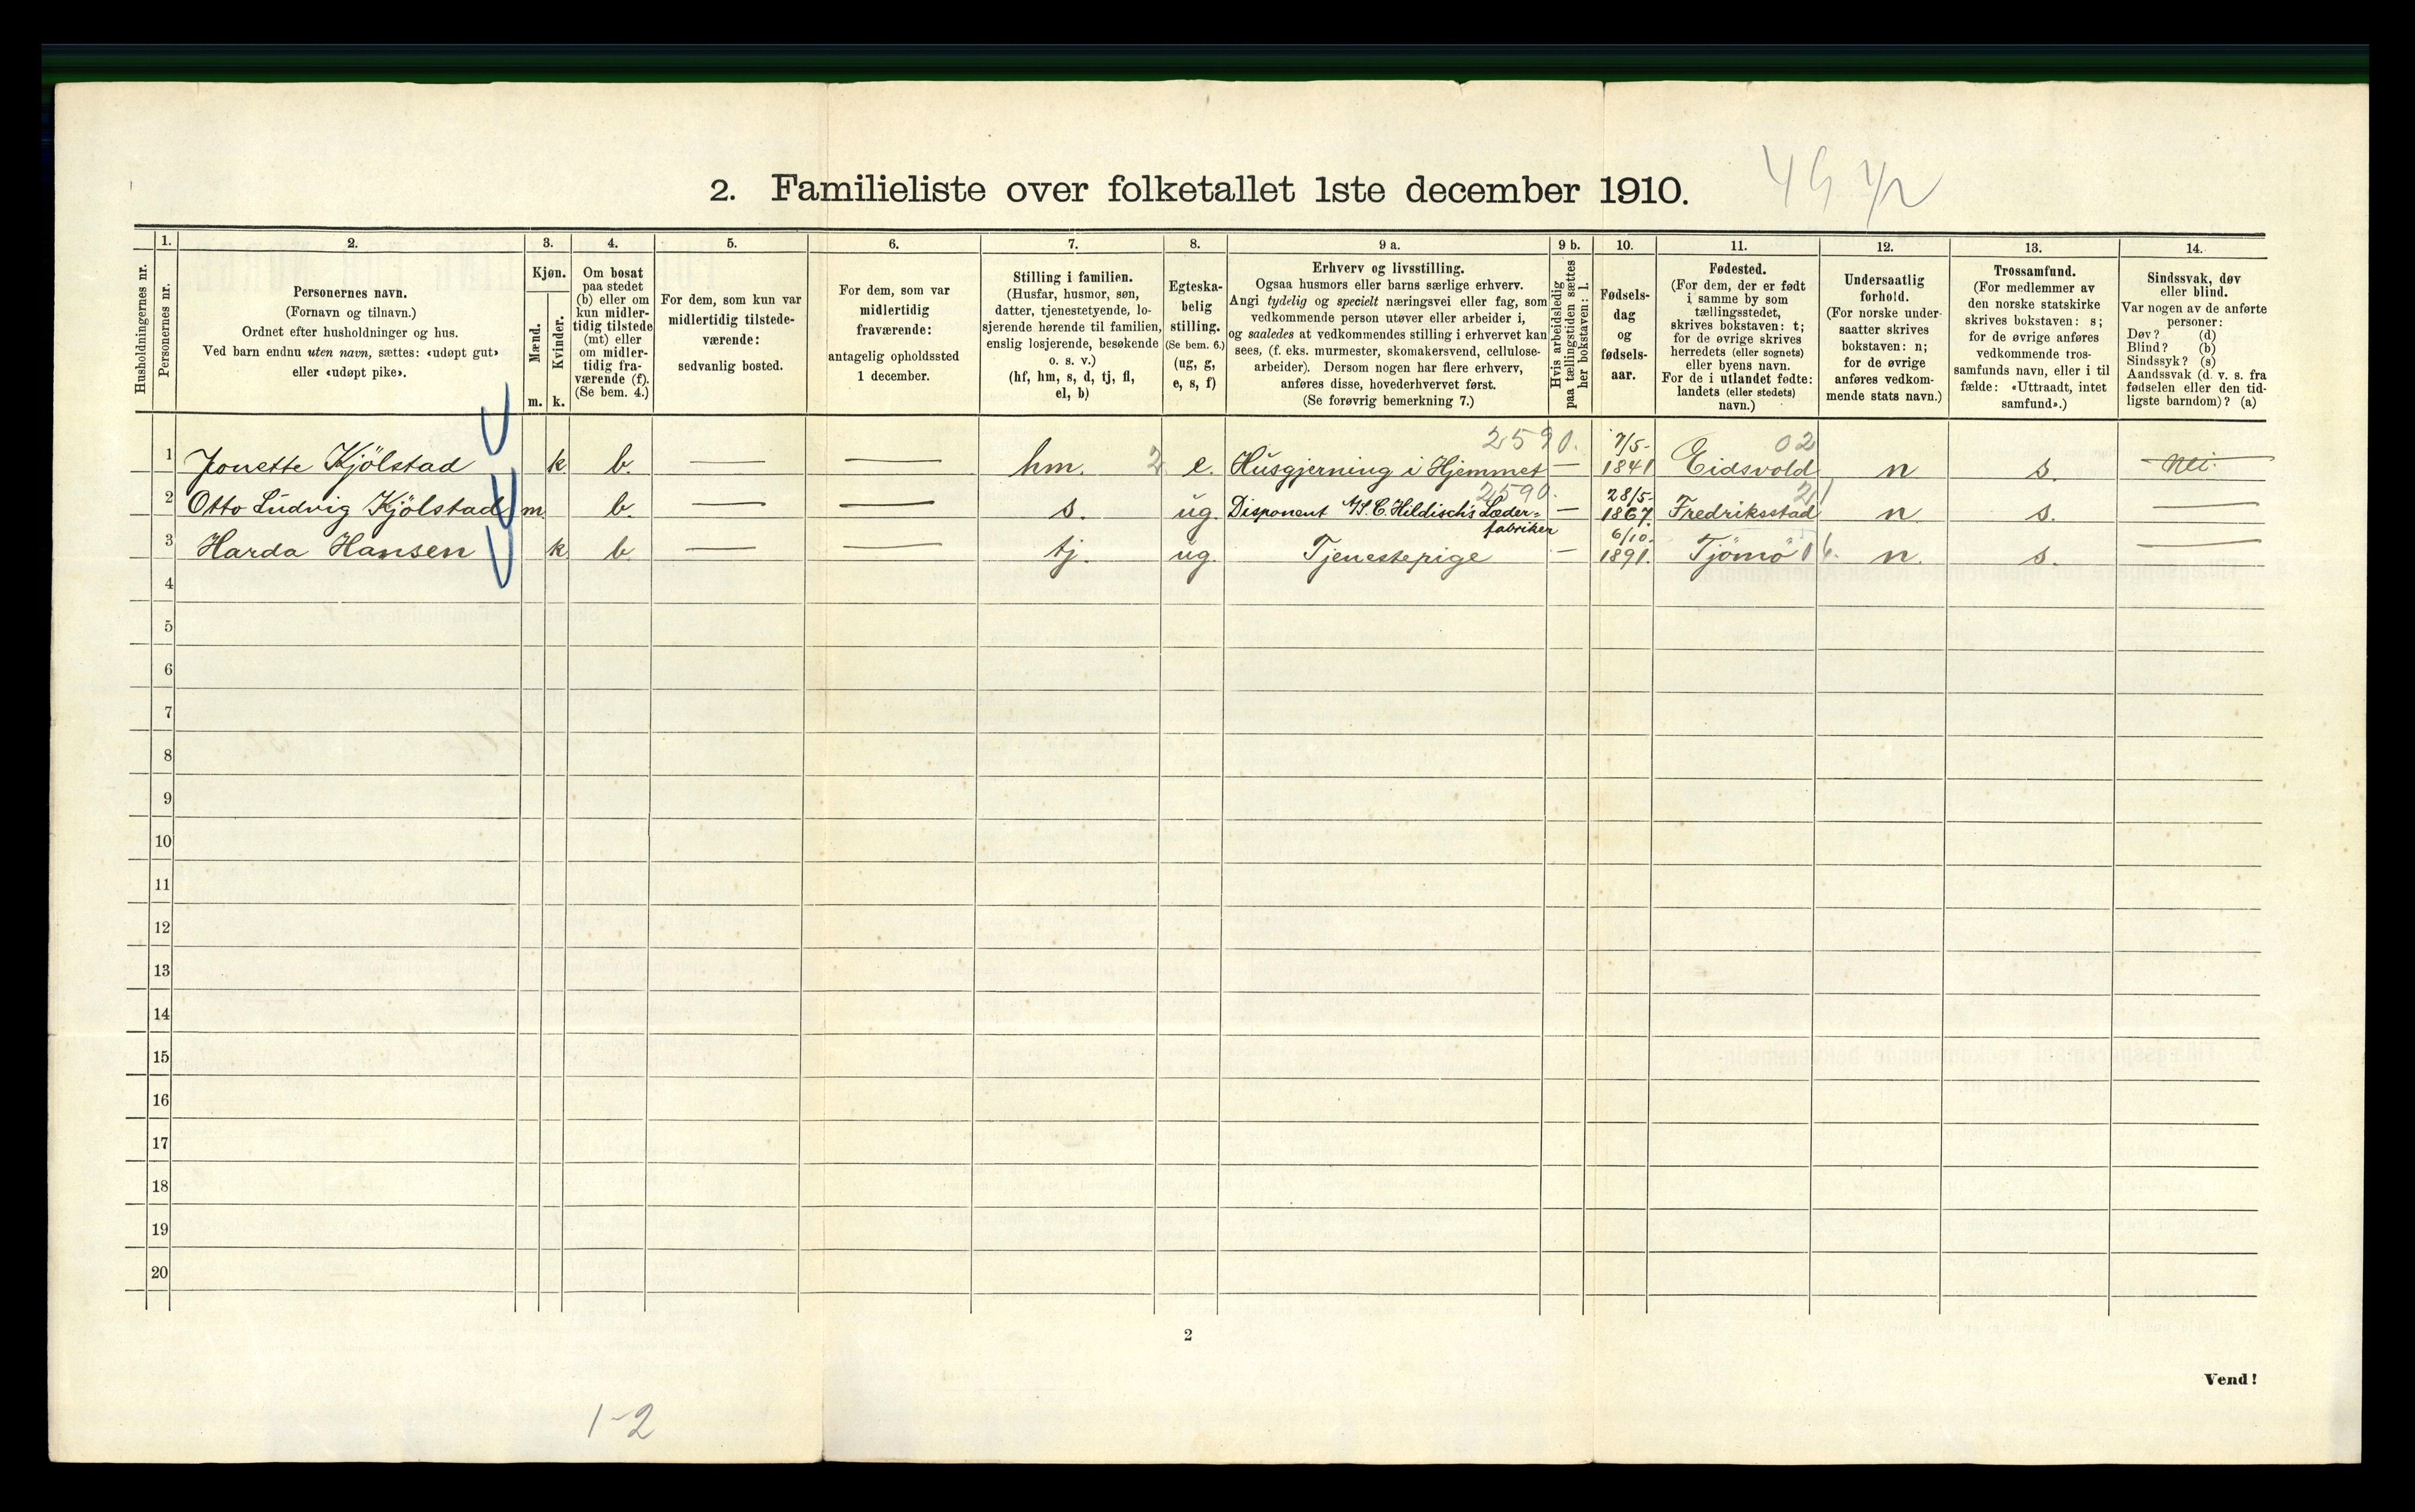 2. Familieliste over folketallet 1ste december 1910.
Husholdningernes nr.
1.
Personernes nr.
2.
Personernes navn.
(Fornavn og tilnavn.)
Ordnet efter husholdninger og hus.
Ved barn endnu uten navn, sættes: «udøpt gut»
eller «udøpt pike».
3.
Kjøn.
Mænd.
Kvinder.
m. k.
4.
Om bosat
paa stedet
(b) eller om
kun midler-
tidig tilstede
(mt) eller
om midler-
tidig fra-
værende (f).
(Se bem. 4.)
5.
For dem, som kun var
midlertidig tilstede-
værende:
sedvanlig bosted.
6.
For dem, som var
midlertidig
fraværende:
antagelig opholdssted
1 december.
7.
Stilling i familien.
(Husfar, husmor, søn,
datter, tjenestetyende, lo-
sjerende hørende til familien,
enslig losjerende, besøkende
o. s. v.)
(hf, hm, s, d, tj, fl,
el, b)
8.
Egteska-
belig
stilling.
(Se bem. 6.)
(ug, g,
e, s, f)
9 a.
Erhverv og livsstilling.
Ogsaa husmors eller barns særlige erhverv.
Angi tydelig og specielt næringsvei eller fag, som
vedkommende person utøver eller arbeider i,
og saaledes at vedkommendes stilling i erhvervet kan
sees, (f. eks. murmester, skomakersvend, cellulose-
arbeider). Dersom nogen har flere erhverv,
anføres disse, hovederhvervet først.
(Se forøvrig bemerkning 7.)
9 b.
Hvis arbeidsledig
paa tællingstiden sættes
her bokstaven: l.
10.
Fødsels-
dag
og
fødsels-
aar.
11.
Fødested.
(For dem, der er født
i samme by som
tællingsstedet,
skrives bokstaven: t;
for de øvrige skrives
herredets (eller sognets)
eller byens navn.
For de i utlandet fødte:
landets (eller stedets)
navn.)
12.
Undersaatlig
forhold.
(For norske under-
saatter skrives
bokstaven: n;
for de øvrige
anføres vedkom-
mende stats navn.)
13.
Trossamfund.
(For medlemmer av
den norske statskirke
skrives bokstaven: s;
for de øvrige anføres
vedkommende tros-
samfunds navn, eller i til
fælde: «Uttraadt, intet
samfund».)
14.
Sindssvak, døv
eller blind.
Var nogen av de anførte
personer:
Døv? (d)
Blind? (b)
Sindssyk? (s)
Aandssvak (d. v. s. fra
fødselen eller den tid-
ligste barndom)? (a)
1 Jonette Kjölstad k b. — — hm. 2 e. 2590. Husgjerning i Hjemmet — 7/5- 1841 02 Eidsvold n s. Nei.
2 Otto Ludvig Kjölstad m b. — — s. ug. 2590. Disponent A/S. C. Hildisch's Læder-
fabriker — 28/5- 1867. Fredriksstad n s. —
3 Harda Hansen k b — — tj. ug. Tjenestepige — 6/10- 1891. Tjömö n. s. —
4
5
6
7
8
9
10
11
12
13
14
15
16
17
18
19
20
2
Vend!
1-2